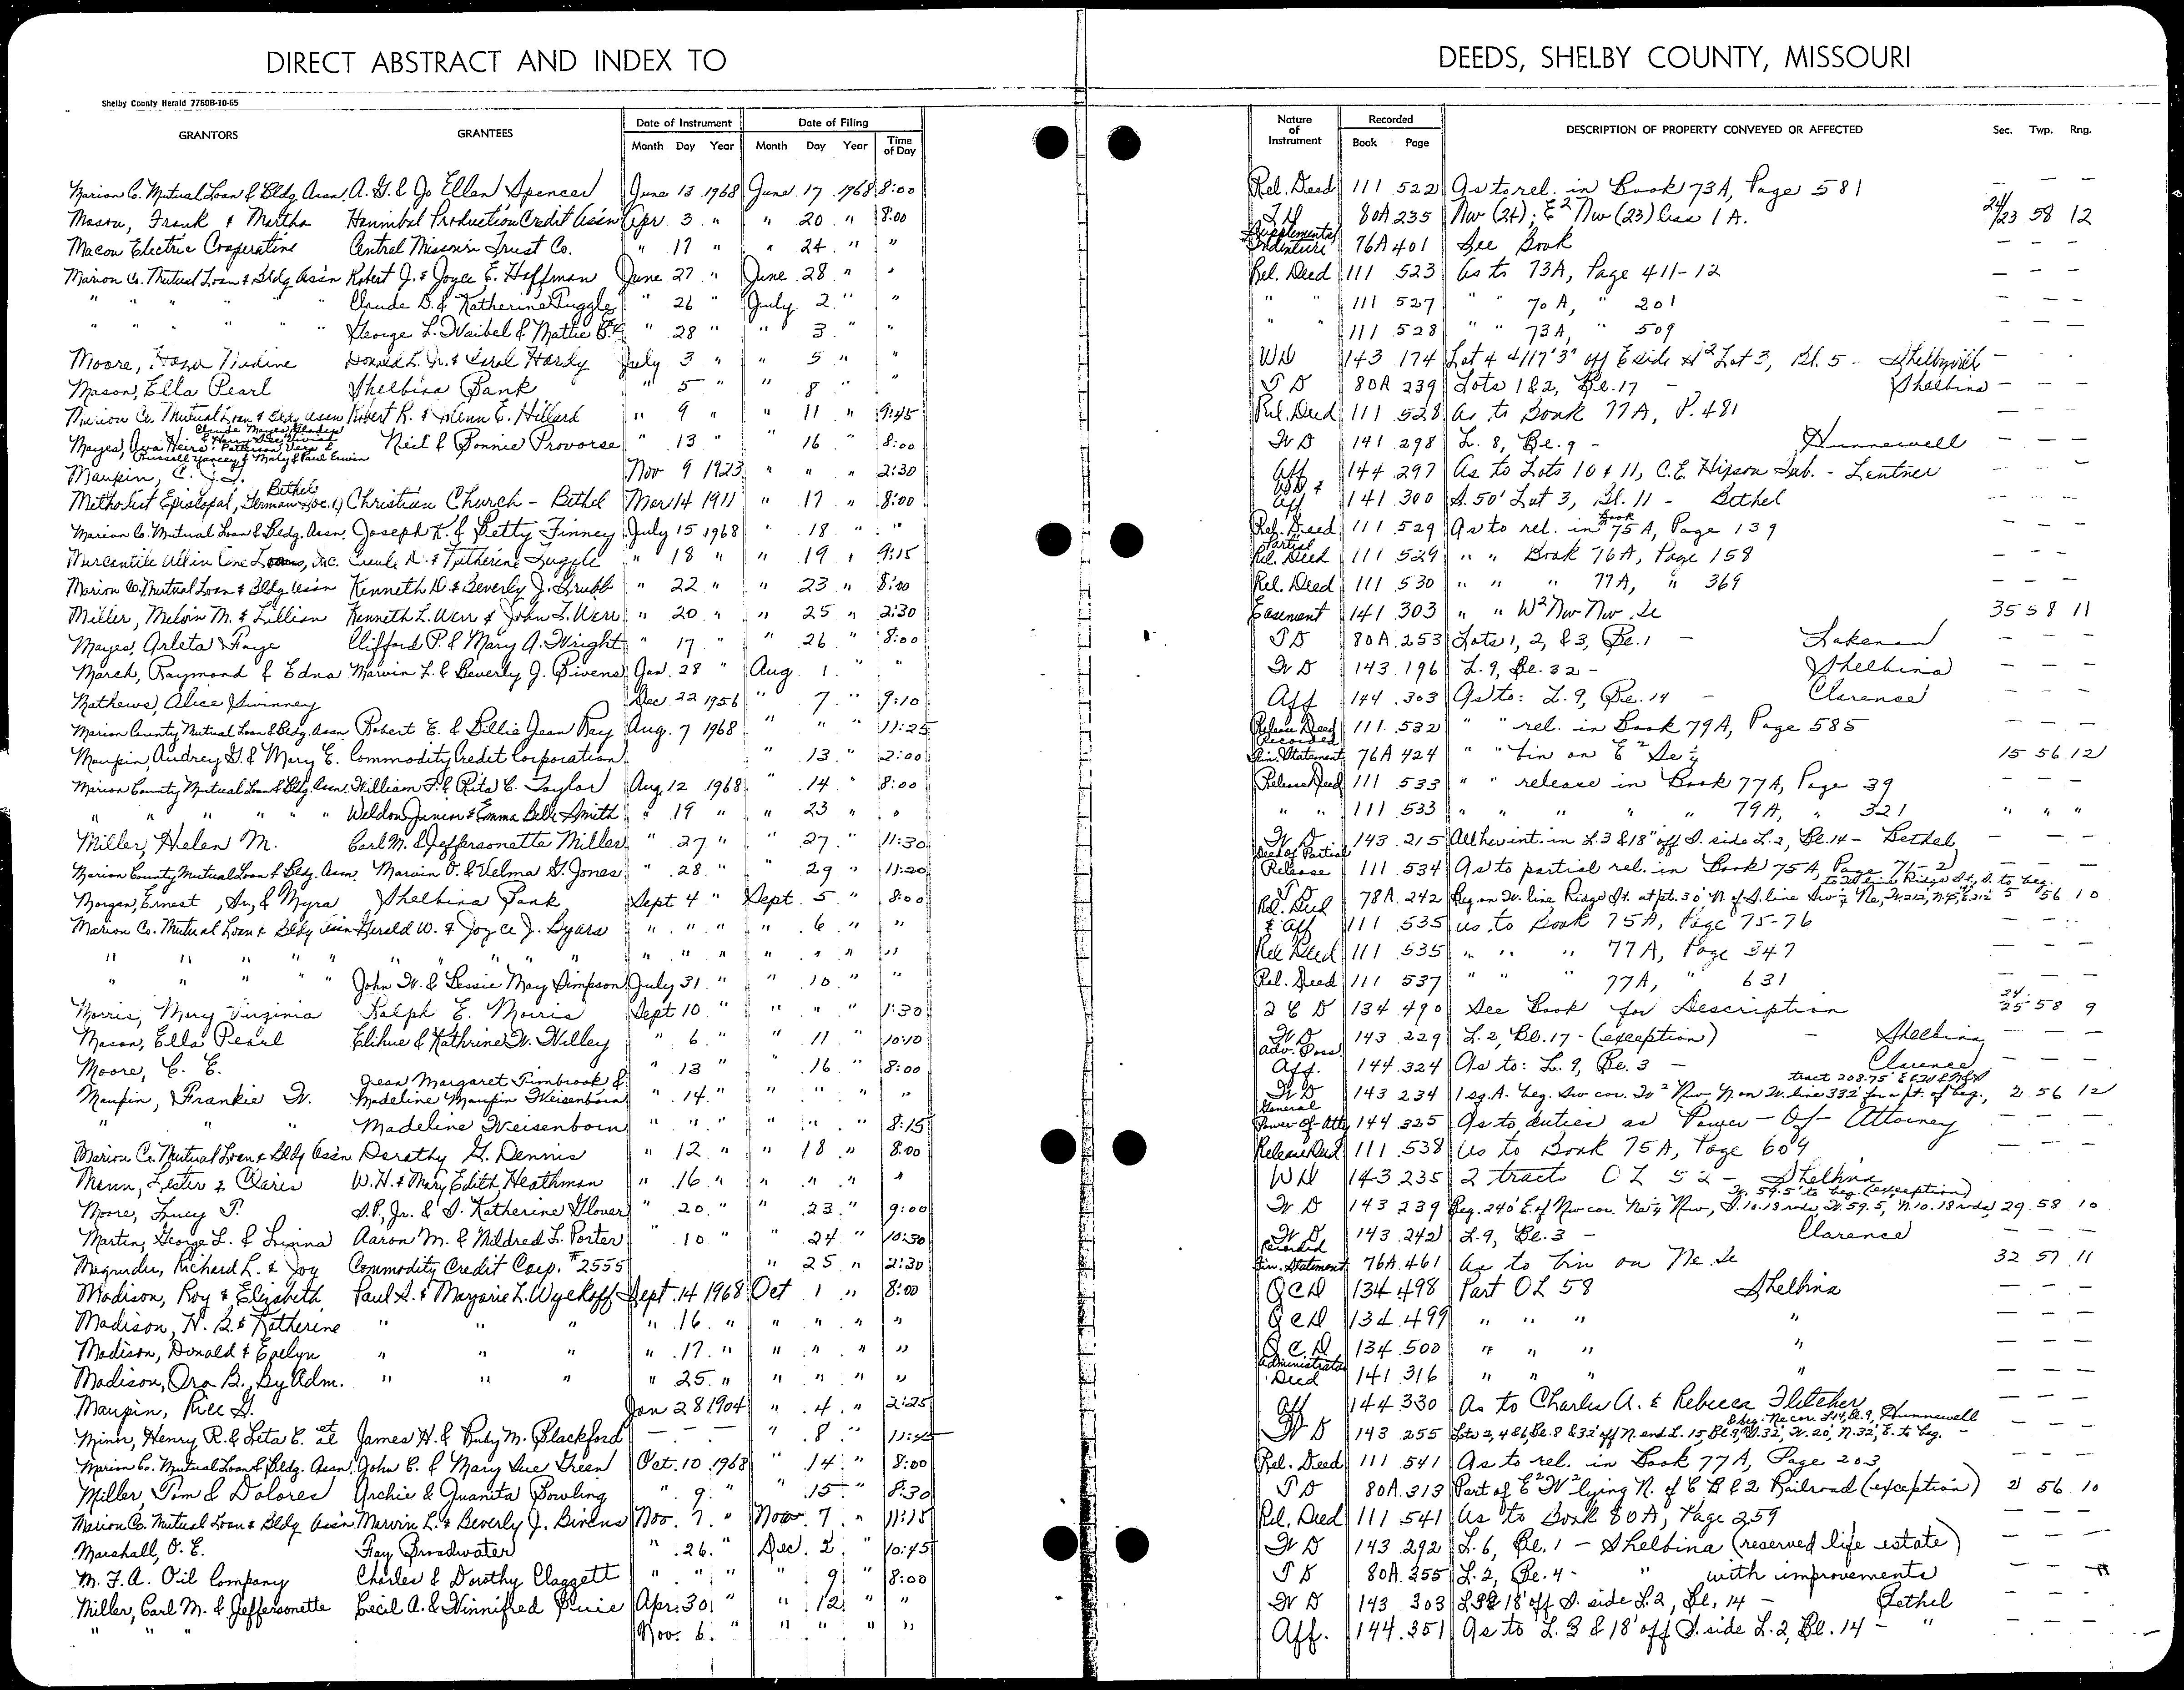 DIRECT ABSTRACT AND INDEX TO DEEDS, SHELBY COUNTY, MISSOURI
Shelby County Herald 7780B-10-65
GRANTORS GRANTEES Date of Instrument Month Day Year Date of Filing Month Day Year Time of Day Nature of Instrument Recorded Book Page DESCRIPTION OF PROPERTY CONVEYED OR AFFECTED Sec. Twp. Rng.
Marion Co. Mutual Loan & Bldg. Assn. A. G. & Jo Ellen Spencer June 13 1968 June 17 1968 8:00 Rel. Deed 111 522 As to rel. in Book 73A, Page 581 — — —
Macon, Frank & Martha Hannibal Production Credit Assn Apr. 3 " " 20 " 8:00 80A 235 Nw (24); E² Nw (23) less 1 A. 24/23 58 12
Macon Electric Cooperative Central Missouri Trust Co. " 17 " " 24 " " Supplemental Indenture 76A 401 See Book — — —
Marion Co. Mutual Loan & Bldg Ass'n Robert J. & Joyce E. Hoffman June 27 " June 28 " " Rel. Deed 111 523 As to 73A, Page 411-12 — — —
" " " " " Claude D. & Katherine Tuggle " 26 " July 2 " " " " 111 527 " " 70A, " 201 — — —
" " " " " George L. Waibel & Mattie " 28 " " 3 " " " " 111 528 " " 73A, " 509 — — —
Moore, Nadine Donald L. Jr. & Carol Hardy July 3 " " 5 " " WD 143 174 Lot 4 & 17'3" off E side S² Lot 3, Bl. 5 - Shelbyville —
Mason, Ella Pearl Shelbina Bank " 5 " " 8 " " T D 80A 239 Lots 1 & 2, Bl. 17 - Shelbina — —
Marion Co. Mutual Loan & Bldg Assn Robert R. & Glenn E. Hillard " 9 " " 11 " 9:45 Rel. Deed 111 528 As to Book 77A, P. 481 — — —
Mayes, Ava Heirs: Claude Mayes, Patterson, Vera & Russell Yancey & Mary & Paul Erwin Neil & Bonnie Provorse " 13 " " 16 " 8:00 W D 141 298 L. 8, Bl. 9 - Hunnewell — — —
Maupin, C. J. Nov 9 1923 " " " 2:30 Aff 144 297 As to Lots 10 & 11, C.E. Hipson Sub. - Lentner
Methodist Episcopal, Bethel Christian Church - Bethel Mar 14 1911 " 17 " 8:00 WD & Aff 141 300 S. 50' Lot 3, Bl. 11 - Bethel — — —
Marion Co. Mutual Loan & Bldg. Assn. Joseph K. & Betty Finney July 15 1968 " 18 " " Rel. Deed 111 529 As to rel. in Book 75A, Page 139 — — —
Mercantile All in One Loans, Inc. Claude D. & Katherine Tuggle " 18 " " 19 " 9:15 Partial Rel. Deed 111 529 " " Book 76A, Page 158 — — —
Marion Co. Mutual Loan & Bldg Ass'n Kenneth D. & Beverly J. Grubb " 22 " " 23 " 8:00 Rel. Deed 111 530 " " " 77A, " 369 — — —
Miller, Melvin M. & Lillian Kenneth L. Werr & John L. Werr " 20 " " 25 " 2:30 Easement 141 303 " " W² Nw Nw Se 35 58 11
Mayes, Arleta Faye Clifford P. & Mary A. Wright " 17 " 26 " 8:00 T D 80A 253 Lots 1, 2, & 3, Bl. 1 - Lakenan — — —
March, Raymond & Edna Marvin L. & Beverly J. Bivens Jan. 28 " Aug. 1 " " W D 143 196 L. 9, Bl. 32 - Shelbina — — —
Mathews, Alice Swinney Dec. 22 1956 " 7 " 9:10 Aff 144 303 As to: L. 9, Bl. 14 - Clarence — — —
Marion County Mutual Loan & Bldg. Assn. Robert E. & Billie Jean Ray Aug. 7 1968 " " " 11:25 Release Deed 111 532 " " rel. in Book 79A, Page 585 — — —
Maupin, Audrey G. & Mary E. Commodity Credit Corporation " 13 " 2:00 Recorded Fin. Statement 76A 424 " " bin on E² Se¼ 15 56 12
Marion County Mutual Loan & Bldg. Assn. William F. & Rita C. Taylor Aug. 12 1968 " 14 " 8:00 Release Deed 111 533 " " release in Book 77A, Page 39 — — —
" " " " " " Weldon Junior & Emma Belle Smith " 19 " " 23 " " " " 111 533 " " " " 79A, " 321 " " "
Miller, Helen M. Carl M. & Jeffersonette Miller " 27 " " 27 " 11:30 W D 143 215 All her int. in L. 3 & 18" off S. side L. 2, Bl. 14 - Bethel — — —
Marion County Mutual Loan & Bldg. Assn. Marvin O. & Velma G. Jones " 28 " " 29 " 11:20 Deed of Partial Release 111 534 As to partial rel. in Book 75A, Page 71-2 — — —
Morgan, Ernest, Sr., & Myra Shelbina Bank Sept 4 " Sept. 5 " 8:00 T D 78A 242 Beg. on W. line Ridge St. at pt. 30' N. of S. line Sw¼ Ne, W. 212, N. 95, E. 212' to W line Ridge St., S. to beg. 5 56 10
Marion Co. Mutual Loan & Bldg Ass'n Gerald W. & Joyce J. Byars " " " " 6 " " Rel. Deed & Aff 111 535 as to Book 75A, Page 75-76 — — —
" " " " " " " " " " " " " " " " " Rel Deed 111 535 " " " 77A, Page 347 — — —
" " " " " John W. & Bessie May Simpson July 31 " " 10 " " Rel. Deed 111 537 " " " 77A, " 631 — — —
Morris, Mary Virginia Ralph E. Morris Sept 10 " " " " 1:30 Q C D 134 490 See Book for Description 24-25 58 9
Mason, Ella Pearl Elihue & Kathrine W. Willey " 6 " " 11 " 10:10 W D 143 229 L. 2, Bl. 17 - (exception) - Shelbina — — —
Moore, C. E. " 13 " 16 " 8:00 Adv. Poss. Aff. 144 324 As to: L. 9, Bl. 3 - Clarence — — —
Maupin, Frankie W. Jean Margaret Timbrook & Madeline Maupin Weisenborn " 14 " " " " " W D 143 234 1 sq. A. beg. Sw cor. W² Nw N. on W. line 332' for a pt. of beg., tract 208.75' E & W & N & S 2 56 12
" " " Madeline Weisenborn " " " " " " 8:15 General Power Of Atty 144 325 As to duties as Power - Of - Attorney — — —
Marion Co. Mutual Loan & Bldg Ass'n Dorothy G. Dennis " 12 " " 18 " 8:00 Release Deed 111 538 As to Book 75A, Page 609 — — —
Menn, Lester & Claris W. H. & Mary Edith Heathman " 16 " " " " " WD 143 235 2 tracts O L 52 - Shelbina
Moore, Lucy P. S. P., Jr. & S. Katherine Glover " 20 " " 23 " 9:00 W D 143 239 Beg. 240' E. of Nw cor. Ne¼ Nw, S. 10.18 rods, W. 59.5', N. 10.18 rods, W. 59.5' to beg. (exception) 29 58 10
Martin, George L. & Aaron M. & Mildred L. Porter " 10 " " 24 " 10:30 W D 143 242 L. 9, Bl. 3 - Clarence — — —
Magruder, Richard L. & Joy Commodity Credit Corp. #2555 " 25 " 2:30 Recorded Fin. Statement 76A 461 As to bin on Ne Se 32 57 11
Madison, Roy & Elizabeth Paul S. & Marjorie L. Wyckoff Sept. 14 1968 Oct 1 " 8:00 Q C D 134 498 Part OL 58 Shelbina — — —
Madison, H. B. & Katherine " " " " 16 " " " " " Q C D 134 499 " " " " — — —
Madison, Donald & Evelyn " " " " 17 " " " " " Q. C. D 134 500 " " " " — — —
Madison, Ora B., By Adm. " " " " 25 " " " " " Administrator Deed 141 316 " " " " — — —
Maupin, Jan 28 1904 " 4 " 2:25 Aff 144 330 As to Charles A. & Rebecca Fletcher — — —
Minor, Henry R. & Leta E. et al James H. & Ruby M. Blackford — — — " 8 " W D 143 255 Lots 2, 4 & 6, Bl. 8 & 32' off N. end L. 15, Bl. 9, & beg. Ne cor. L. 14, Bl. 9, S. 32', W. 20', N. 32', E. to beg. - Hunnewell — — —
Marion Co. Mutual Loan & Bldg. Assn. John C. & Mary Sue Green Oct. 10 1968 " 14 " 8:00 Rel. Deed 111 541 As to rel. in Book 77A, Page 203 — — —
Miller, Tom & Dolores Archie & Juanita Bowling " 9 " " 15 " 8:30 T D 80A 313 Part of E² W² lying N. of C B & Q Railroad (exception) 2 56 10
Marion Co. Mutual Loan & Bldg Ass'n Marvin L. & Beverly J. Bivens Nov. 7 " Nov. 7 " 11:15 Rel. Deed 111 541 As to Book 80A, Page 259 — — —
Marshall, O. E. Fay Broadwater " 26 " Dec. 2 " 10:45 W D 143 292 L. 6, Bl. 1 - Shelbina (reserved life estate) — — —
M. F. A. Oil Company Charles & Dorothy Claggett " " " " 9 " 8:00 T D 80A 355 L. 2, Bl. 4 - " with improvements — —
Miller, Carl M. & Jeffersonette Cecil A. & Winnifred Apr. 30 " " 12 " " W D 143 303 L 3 & 18' off S. side L. 2, Bl. 14 - Bethel — — —
" " " Nov. 6 " " " " " Aff. 144 351 As to L. 3 & 18' off S. side L. 2, Bl. 14 - " — — —